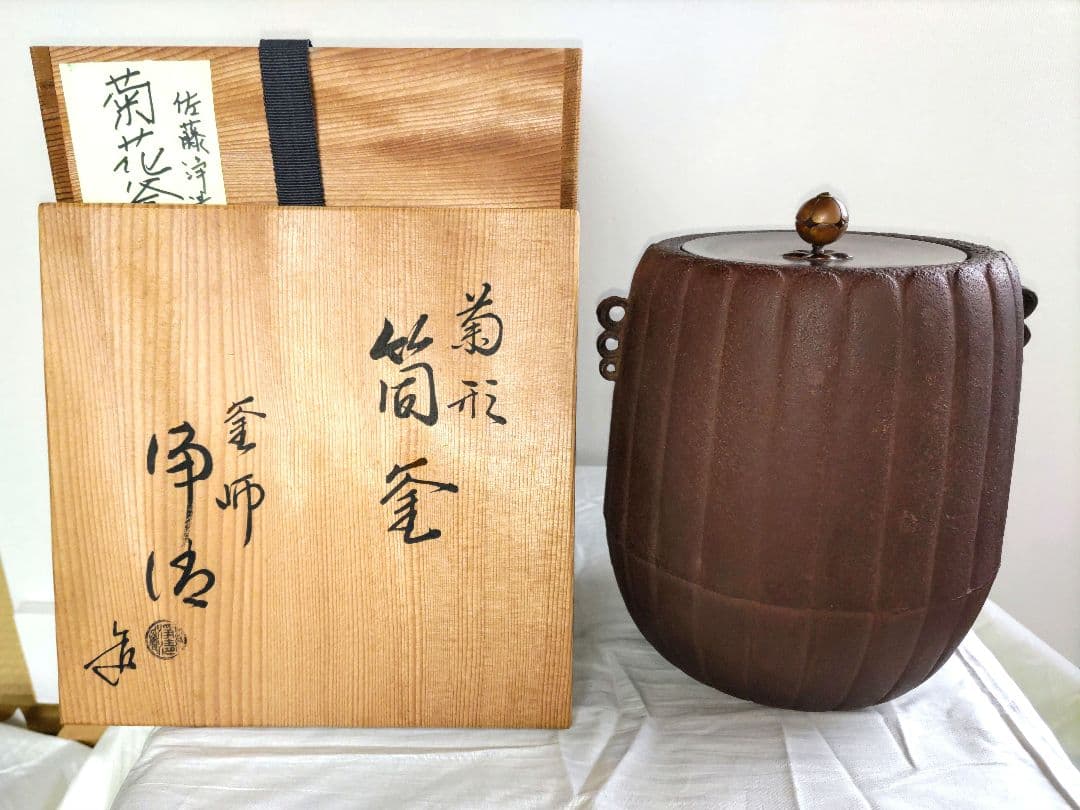 佐藤浄清
菊花釜
菊形
筒釜
釜師
浄清